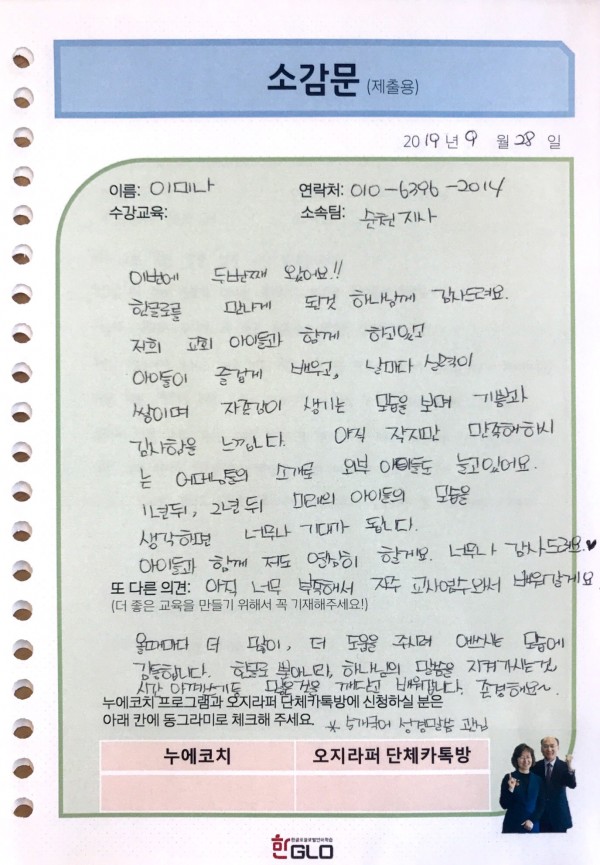 소감문 (제출용)
2019년 9월 28일
이름: 이미나 연락처: 010-6396-2014
수강교육: 소속팀: 순천지사
이번에 두번째 왔어요!!
한글로를 만나게 된것 하나님께 감사드려요.
저희 교회 아이들과 함께 하고있고
아이들이 즐겁게 배우고, 날마다 실력이
쌓이며 자존감이 생기는 모습을 보며 기쁨과
감사함을 느낍니다. 아직 작지만 만족해하시
는 어머님들의 소개로 외부 아이들도 늘고있어요.
1년뒤, 2년 뒤 미래의 아이들의 모습을
생각하면 너무나 기대가 됩니다.
아이들과 함께 저도 열심히 할게요. 너무나 감사드려요.♥
또 다른 의견: 아직 너무 부족해서 자주 교사연수와서 배워갈게요
(더 좋은 교육을 만들기 위해서 꼭 기재해주세요!)
올때마다 더 많이, 더 도움을 주시려 애쓰시는 모습에
감동합니다. 한글로 뿐아니라, 하나님의 말씀을 지켜가시는것
많은것을 깨닫고 배워갑니다. 존경해요~
누에코치 프로그램과 오지라퍼 단체카톡방에 신청하실 분은
아래 칸에 동그라미로 체크해 주세요. * 5개국어 성경말씀 관심
누에코치 오지라퍼 단체카톡방
한GLO